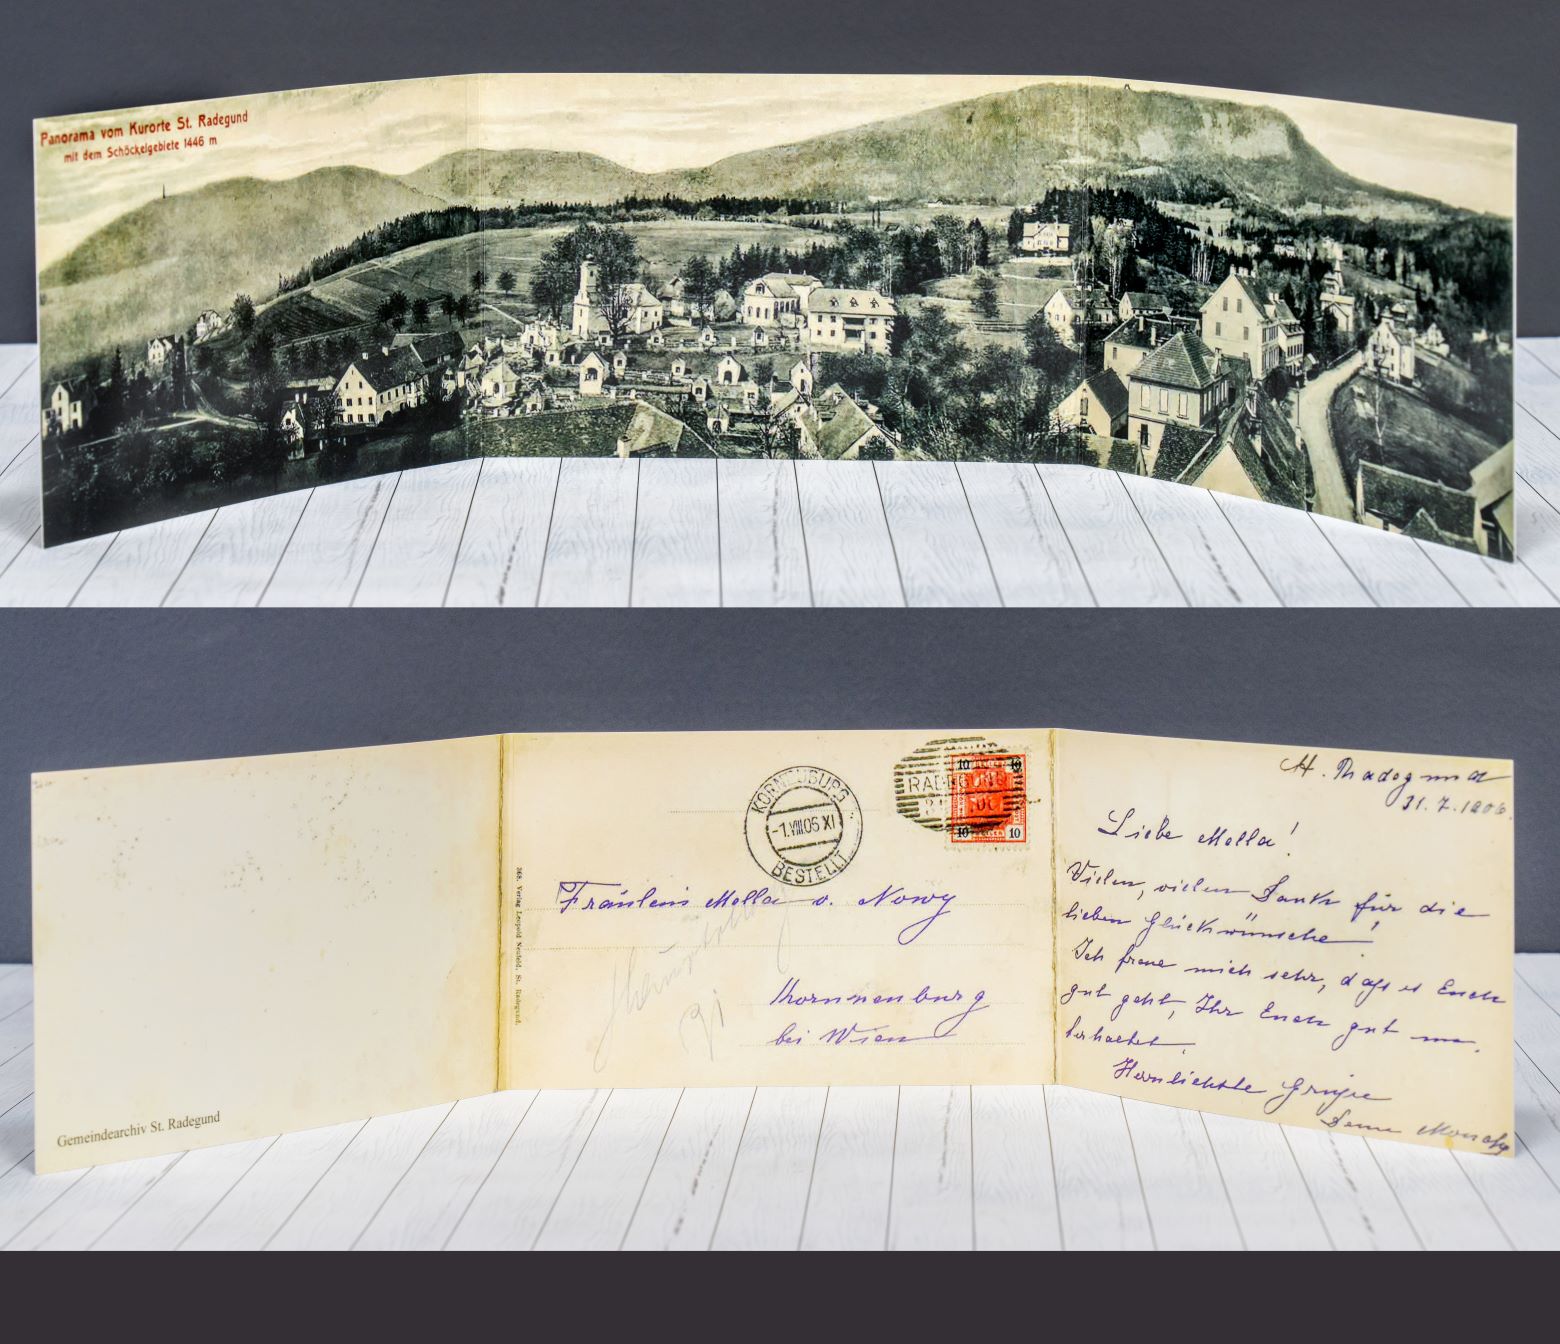 Panorama vom Kurorte St. Radegund
mit dem Schöckelgebiete 1446 m
KORNEUBURG
-1.VIII.06 XI
BESTELLT
RADEGUND
10 10
10 10
St. Radegund
31.7.1906.
Liebe Mella!
Vielen, vielen Dank für die
lieben Glückwünsche!
Ich freue mich sehr, daß es Euch
gut geht, Ihr Euch gut un-
terhaltet.
Herzlichste Grüße
Fräulein Mella v. Nowy
Kornnenburg
bei Wien
368. Verlag Leopold Neufeld, St. Radegund.
Gemeindearchiv St. Radegund